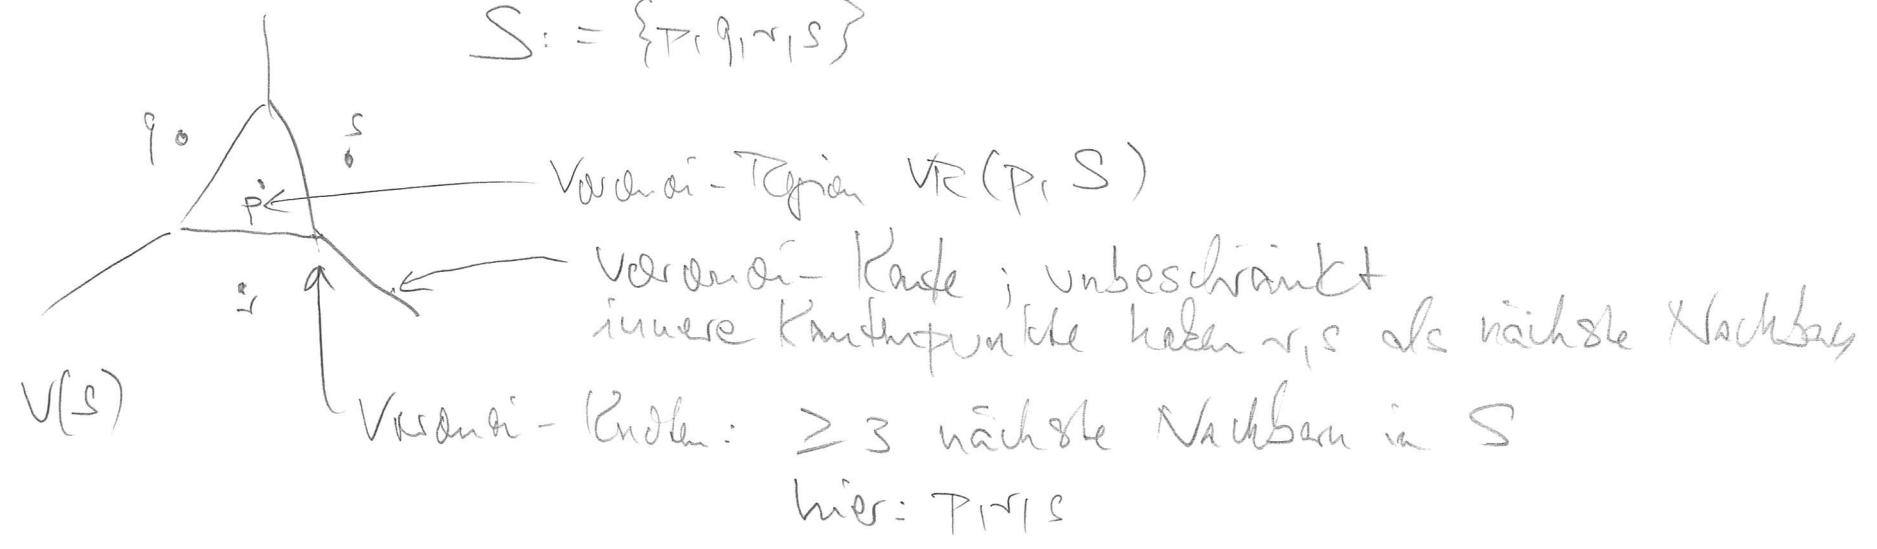 S := {p, q, r, s}
q
s
Voronoi-Region VR(p, S)
p
Voronoi-Kante ; unbeschränkt
innere Kantenpunkte haben r, s als nächste Nachbarn
r
V(S)
Voronoi-Knoten: ≥ 3 nächste Nachbarn in S
hier: p, r, s